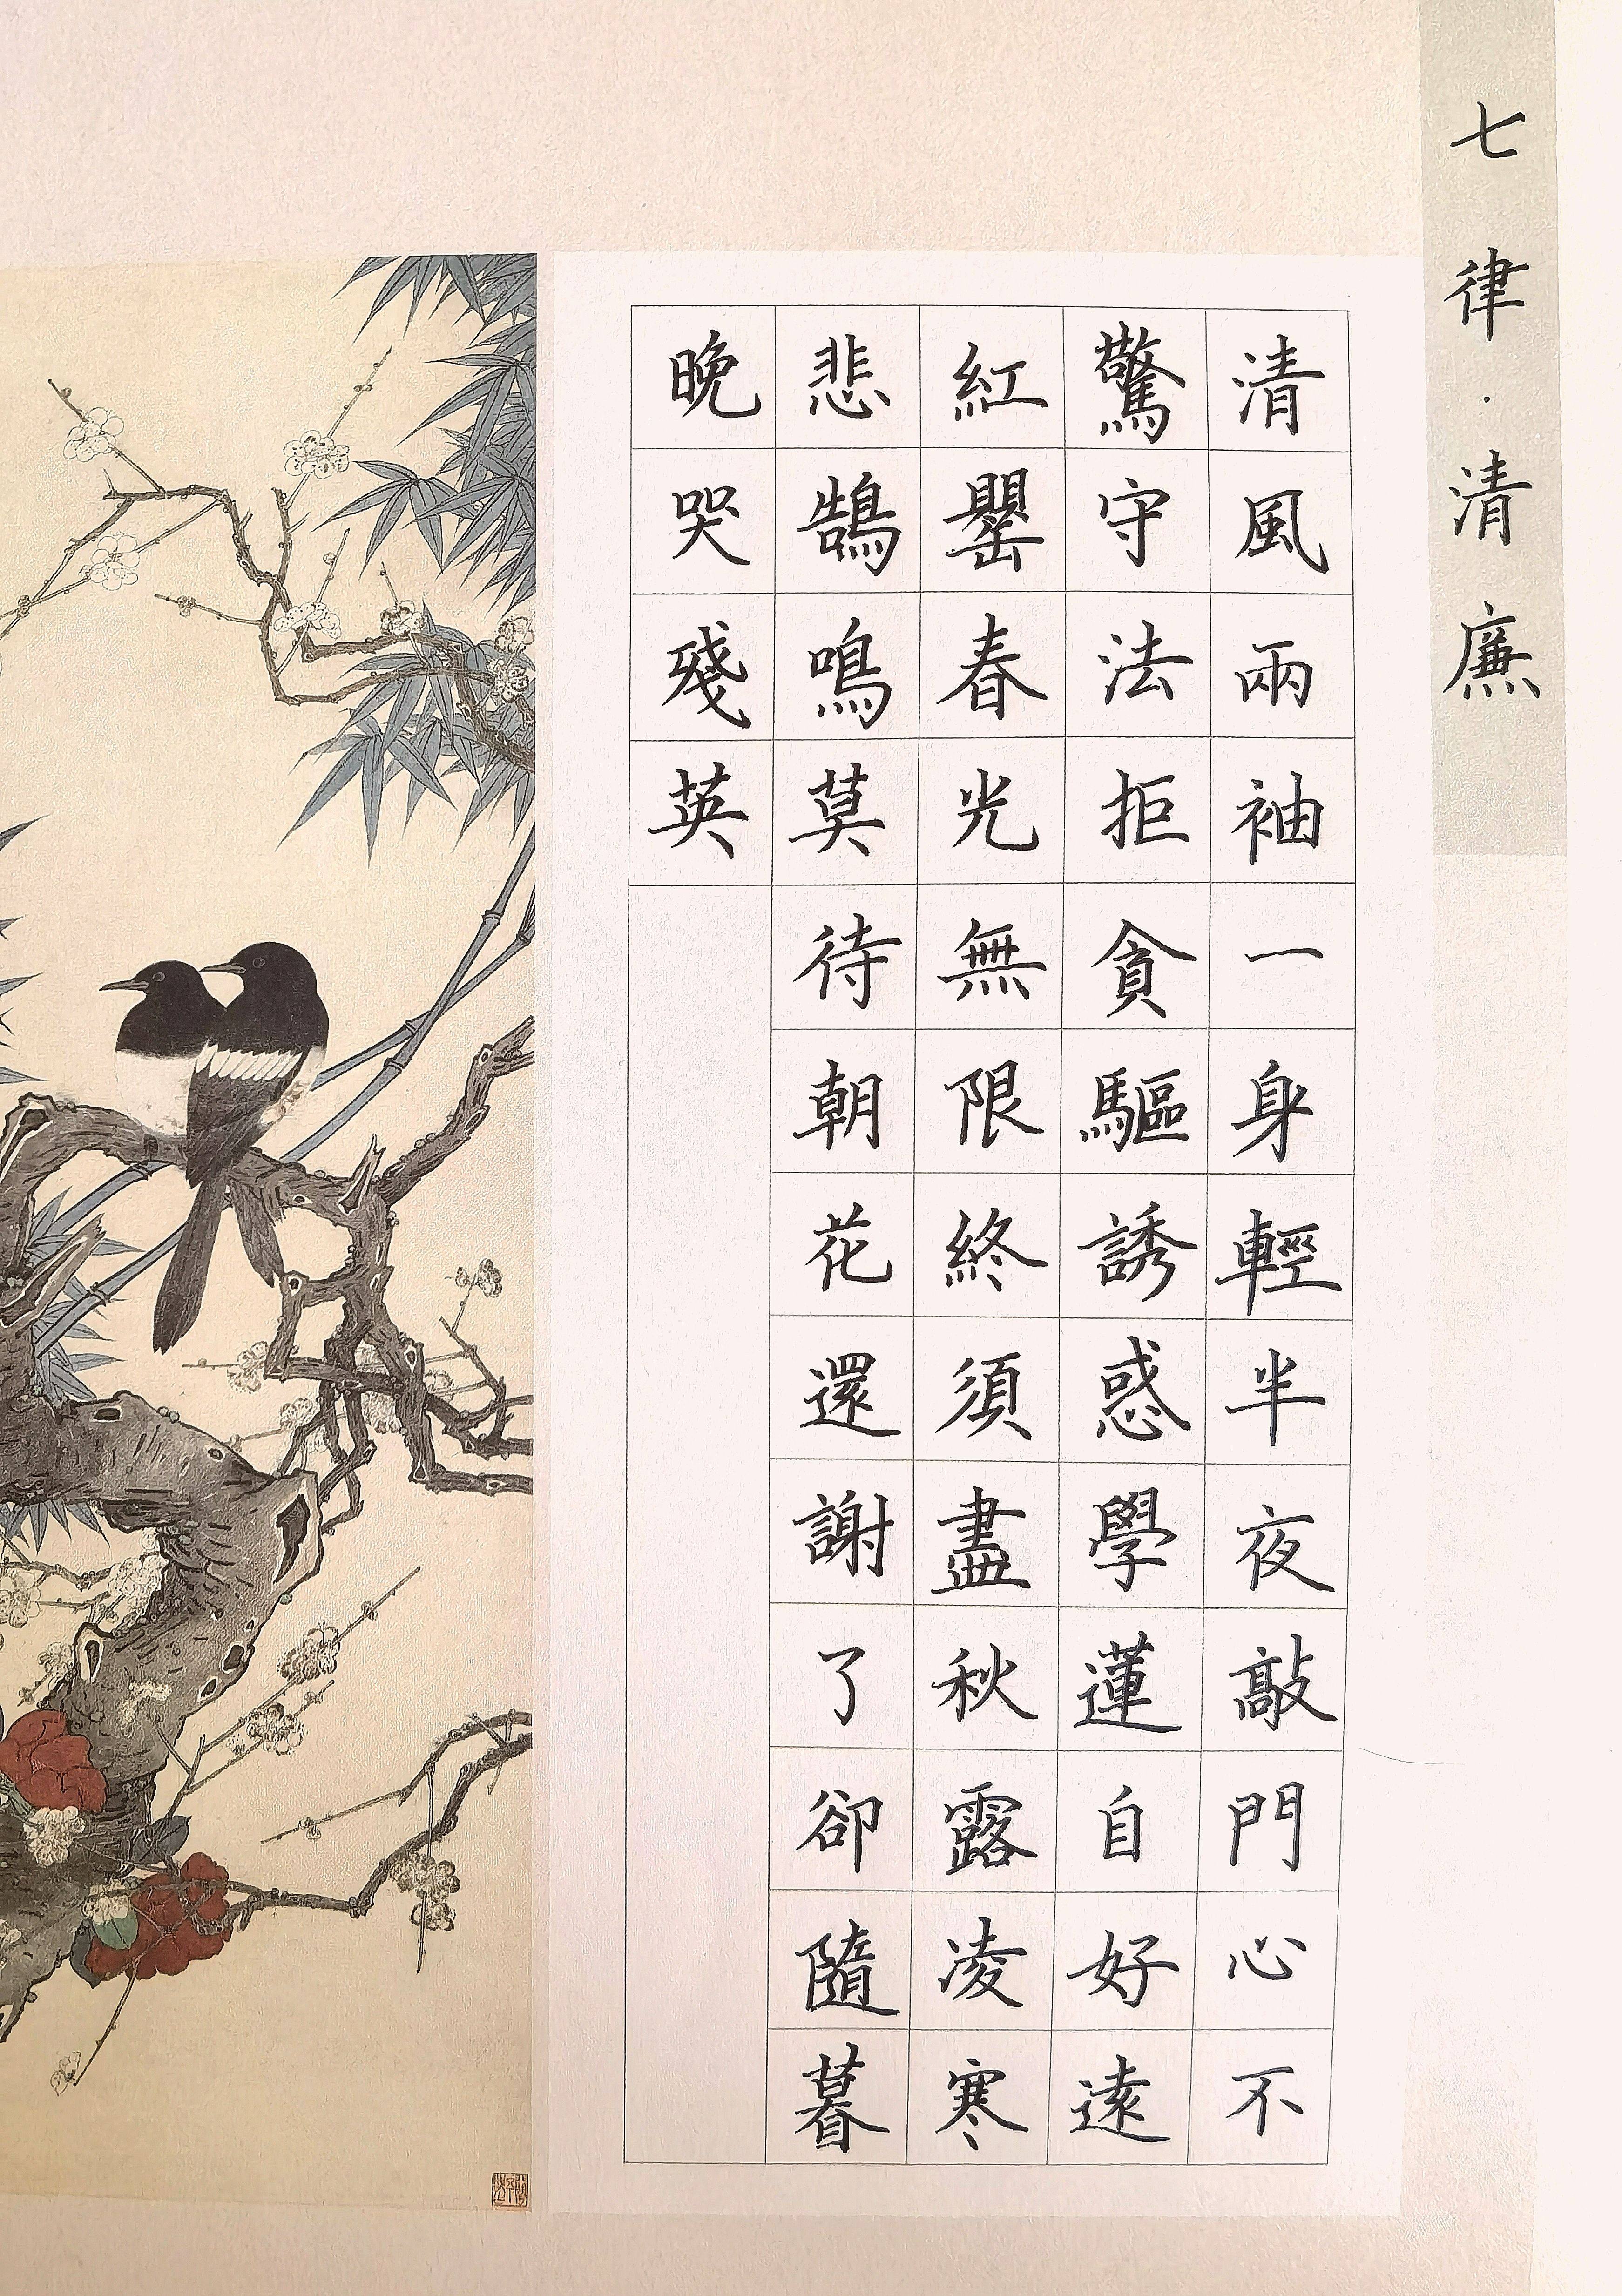 七律·清廉
清風兩袖一身輕半夜敲門心不
驚守法拒貪驅誘惑學蓮自好遠
紅罌春光無限終須盡秋露凌寒
悲鵠鳴莫待朝花還謝了卻隨暮
晚哭殘英